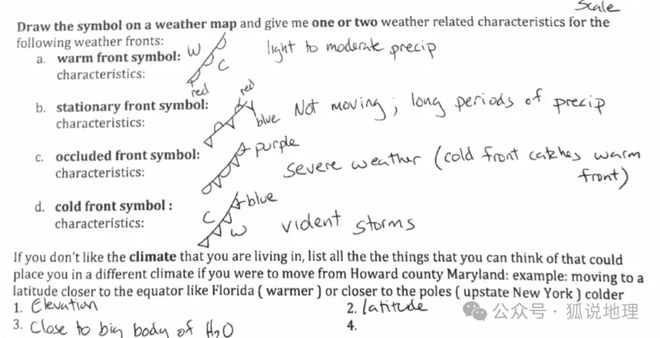 Scale
Draw the symbol on a weather map and give me one or two weather related characteristics for the
following weather fronts:
a. warm front symbol: W C red light to moderate precip
characteristics:
b. stationary front symbol: red blue Not moving; long periods of precip
characteristics:
c. occluded front symbol: purple severe weather (cold front catches warm front)
characteristics:
d. cold front symbol : C blue W vident storms
characteristics:
If you don't like the climate that you are living in, list all the the things that you can think of that could
place you in a different climate if you were to move from Howard county Maryland: example: moving to a
latitude closer to the equator like Florida ( warmer ) or closer to the poles ( upstate New York ) colder
1. Elevation 2. latitude
3. Close to big body of H2O 4.
公众号·狐说地理